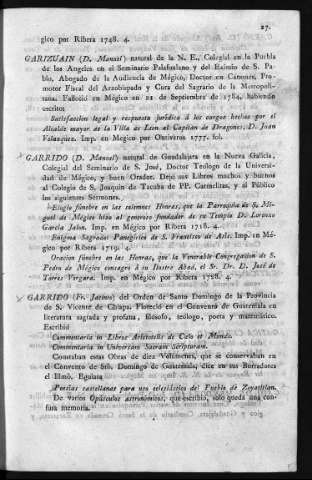 27.
gico por Ribera 1748. 4.
GARIZUAIN (D. Manuel) natural de la N. E., Colegial en la Puebla
de los Angeles en el Seminario Palafoxiano y del Eximio de S. Pa-
blo, Abogado de la Audiencia de Mégico, Doctor en Canones, Pro-
motor Fiscal del Arzobispado y Cura del Sagrario de la Metropoli-
tana. Falleció en México en 21 de Septiembre de 1784, habiendo
escrito
Satisfaccion legal y respuesta jurídica á los cargos hechos por el
Alcalde mayor de la Villa de Leon al Capitan de Dragones, D. Juan
Velazquez. Imp. en Megico por Ontiveros 1777. fol.
GARRIDO (D. Manuel) natural de Guadalajara en la Nueva Galicia,
Colegial del Seminario de S. José, Doctor Teólogo de la Universi-
dad de Mégico, y buen Orador. Dejó sus Libros muchos y buenos
al Colegio de S. Joaquin de Tacuba de PP. Carmelitas, y al Público
los siguientes Sermones.
Elogio fúnebre en las solemnes Honras, que la Parroquia de S. Mi-
guel de Mégico hizo al generoso fundador de su Templo D. Lorenzo
Garcia Jalon. Imp. en Mégico por Ribera 1718. 4.
Enigma Sagrado: Panegírico de S. Francisco de Asis: Imp. en Mé-
gico por Ribera 1719. 4.
Oracion fúnebre en las Honras, que la Venerable Congregacion de S.
Pedro de Mégico consagró á su Ilustre Abad, el Sr. Dr. D. José de
Torres Vergara. Imp. en Mégico por Ribera 1728. 4.
GARRIDO (Fr. Jacinto) del Orden de Santo Domingo de la Provincia
de S. Vicente de Chiapa. Floreció en el Convento de Guatemala en
literatura sagrada y profana, filósofo, teólogo, poeta y matemático.
Escribió
Commentaria in Libros Aristotelis de Cælo et Mundo.
Commentaria in Universam Sacram Scripturam.
Constaban estas Obras de diez Volúmenes, que se conservaban en
el Convento de Sto. Domingo de Guatemala, dice en sus Borradores
el Illmô. Eguiara
Poesías castellanas para uso
De varios Opúsculos astronómicos, que escribió, solo queda una con-
fusa memoria.